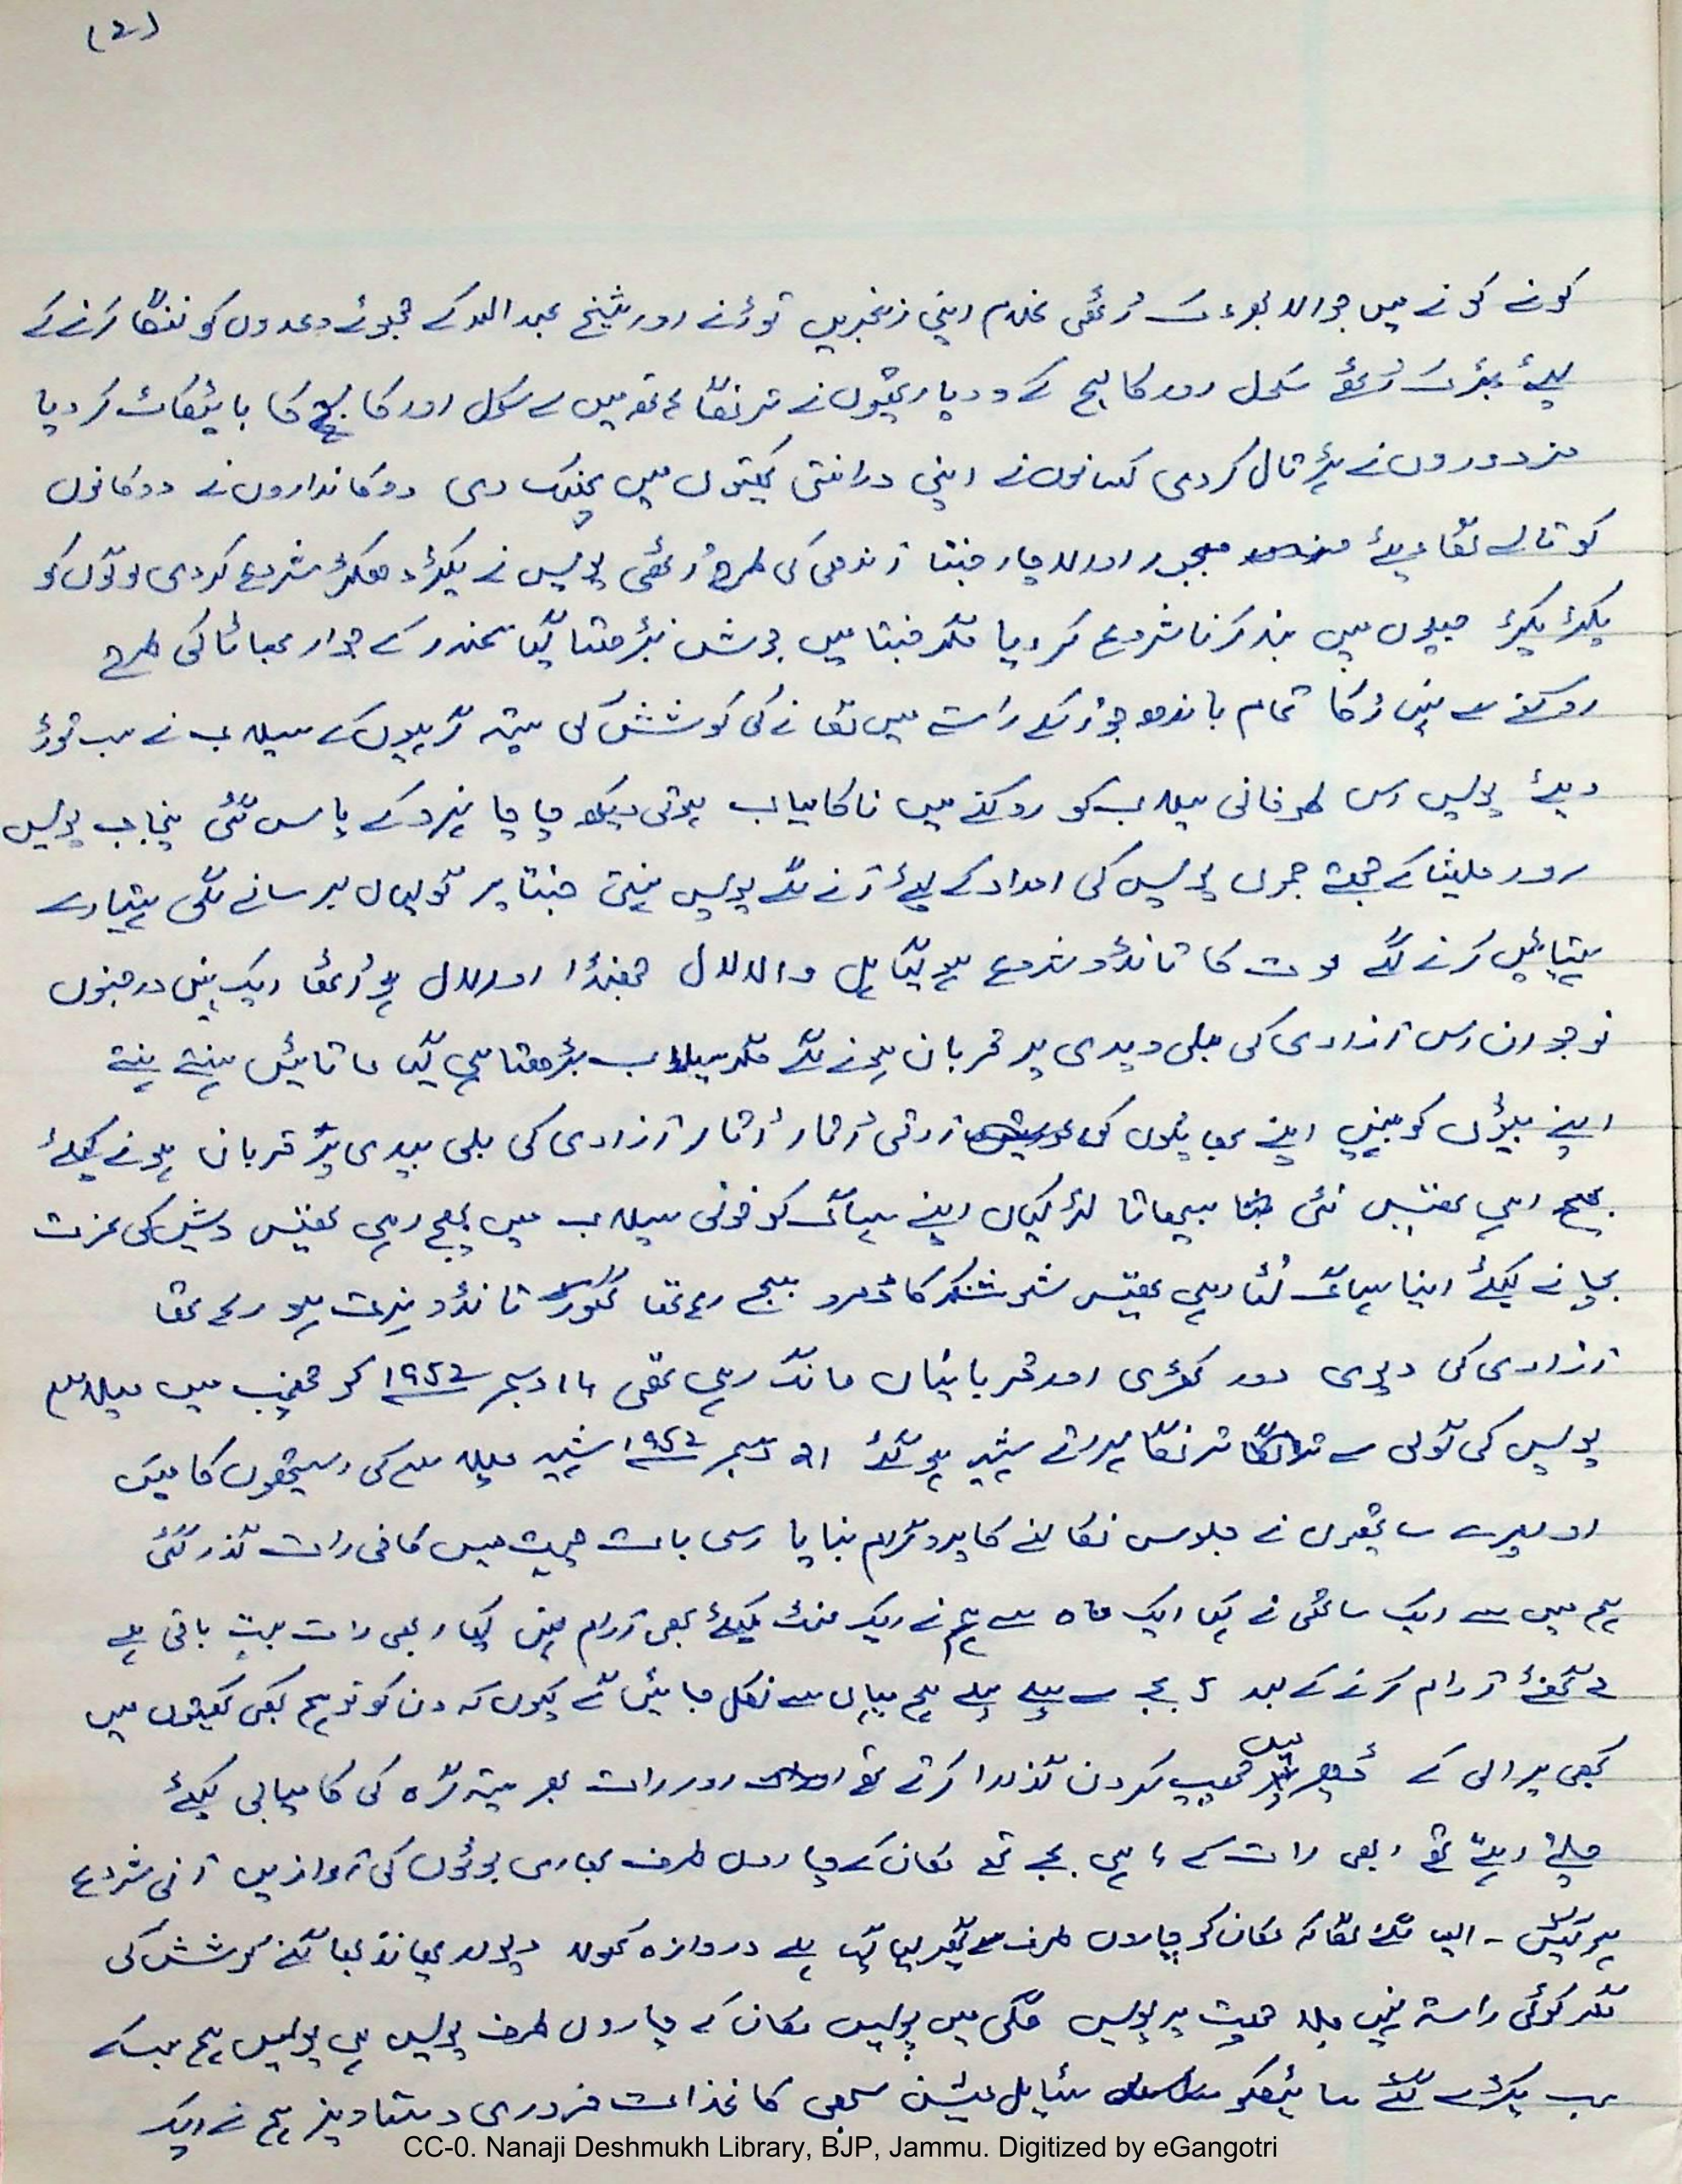 (2)
کونے کونے میں جوالا بھڑک اُٹھی غلام اپنی زنجیریں توڑنے اور شیخ عبداللہ کے جھوٹے وعدوں کو ننگا کرنے کے
لیئے بھڑک اُٹھے سکول اور کالیج کے ودیارتھیوں نے ترنگا ہتھ میں لے سکول اور کالج کا بائیکاٹ کر دیا
مزدوروں نے ہڑتال کر دی کسانوں نے اپنی درانتی کھیتوں میں پھینک دی دوکانداروں نے دوکانوں
کو تالے لگا دیئے مجبور اور لاچار جنتا آندھی کی طرح اُٹھی پولیس نے پکڑ دھکڑ شروع کر دی لوگوں کو
پکڑ پکڑ جیلوں میں بند کرنا شروع کر دیا مگر جنتا میں جوش بڑھتا گیا سمندر کے جوار بھاٹا کی طرح
روکنے سے نہیں رُکا تمام باندھ جو اُرکے راستے میں لگانے کی کوشش کی ستیہ گرہیوں کے سیلاب نے سب توڑ
دیئے پولیس اس طوفانی سیلاب کو روکنے میں ناکامیاب ہوتی دیکھ چاچا نہرو کے پاس گئی پنجاب پولیس
اور ملیشا کے جھتے جموں پولیس کی امداد کے لیئے آنے لگے پولیس نہتی جنتا پر گولیاں برسانے لگی ہتیارے
ہتیائیں کرنے لگے موت کا تانڈو شروع ہو گیا ہل والا لال جھنڈا اور لال ہو اُٹھا ایک نہیں درجنوں
نوجوان اس آزادی کی بلی ویدی پر قربان ہونے لگے مگر سیلاب بڑھتا ہی گیا ماتائیں ہنستے ہنستے
اپنے بیٹوں کو بہنیں اپنے بھائیوں کی آرتی اُتار اُتار آزادی کی بلی بیدی پر قربان ہونے کیلئے
بھیج رہی تھیں نئی بیاہتا لڑکیاں اپنے سہاگ کو خونی سیلاب میں بھیج رہی تھیں دیش کی عزت
بچانے کیلئے اپنا سہاگ لُٹا رہی تھیں شو شنکر کا ڈمرو بج رہا تھا گھور تانڈو نرت ہو رہا تھا
آزادی کی دیوی دور کھڑی اور قربانیاں مانگ رہی تھی ۱۴ دسمبر ۱۹۵۲ کو چھمب میں میلا رام
پولیس کی گولی سے ترنگا لہراتے شہید ہو گئے ۲۱ دسمبر ۱۹۵۲ شہید میلا رام کی استھیوں کا میں
اور میرے ساتھیوں نے جلوس نکالنے کا پروگرام بنایا اسی بات چیت میں کافی رات گذر گئی
ہم میں سے ایک ساتھی نے کہا ایک ماہ سے ہم نے ایک منٹ کیلئے بھی آرام نہیں کیا ابھی رات بہت باقی ہے
گھنٹے آرام کرنے کے بعد ۵ بجے سے پہلے پہلے ہم یہاں سے نکل جائیں گے کیوں کہ دن کو تو ہم کبھی کھیتوں میں
کبھی پرالی کے ڈھیر میں چھپ کر دن گذارا کرتے تھے اور رات بھر ستیہ گرہ کی کامیابی کیلئے
چلتے رہتے تھے ابھی رات کے ۲ ہی بجے تھے مکان کے چاروں طرف بھاری بوٹوں کی آوازیں آنی شروع
ہو گئیں - ایسا لگے لگا کہ مکان کو چاروں طرف سے گھیر لیا گیا ہے دروازہ کھولا دیوار پھاند بھاگنے کوشش کی
مگر کوئی راستہ نہیں ملا چھت پر پولیس گلی میں پولیس مکان کے چاروں طرف پولیس ہی پولیس ہم سب کے
سب پکڑے گئے سائیکلو سٹائل مشین سبھی کاغذات ضروری دستاویز ہم نے ایک
CC-0. Nanaji Deshmukh Library, BJP, Jammu. Digitized by eGangotri